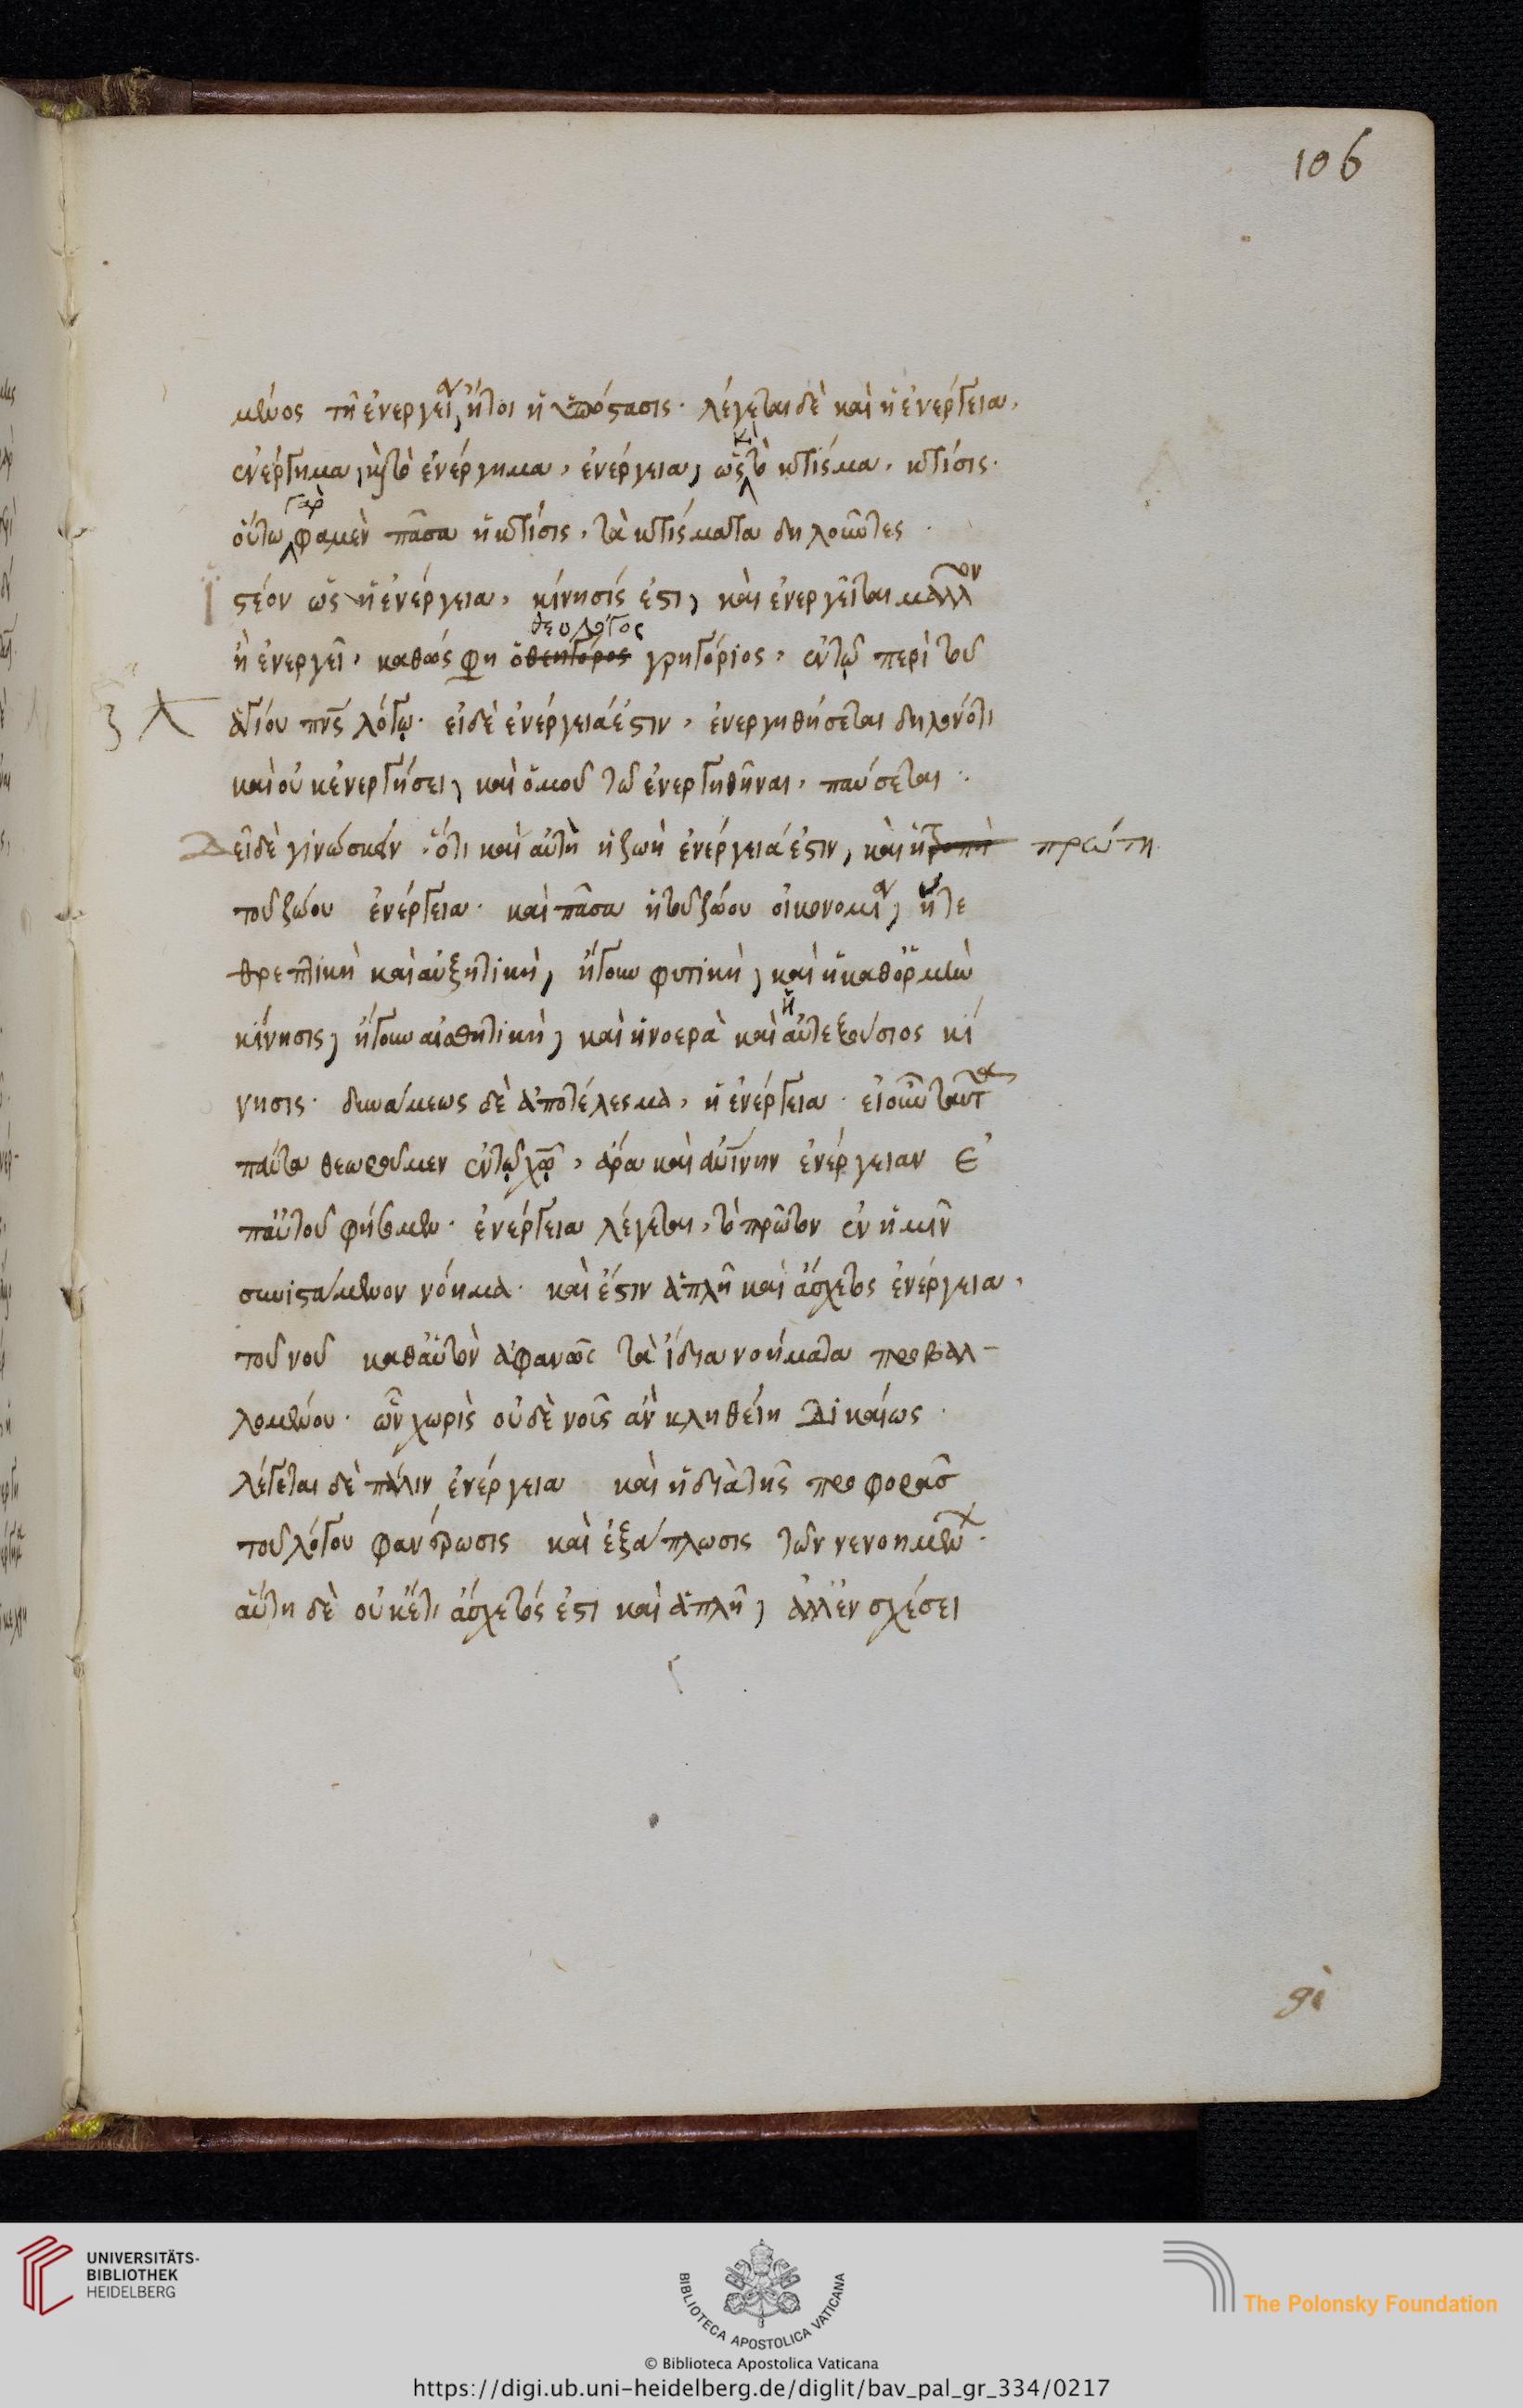 106
μενος τῆ ἐνεργεία, ἤτοι ἡ ὑπόστασις· λέγεται δὲ καὶ ἡ ἐνέργεια,
ἐνέργημα, καὶ τὸ ἐνέργημα, ἐνέργεια, ὡς καὶ τὸ κτίσμα, κτίσις·
οὕτω γὰρ φαμὲν πᾶσα ἡ κτίσις, τὰ κτίσματα δηλοῦντες·
Ἰστέον ὡς ἡ ἐνέργεια, κίνησίς ἐστι, καὶ ἐνεργεῖται μᾶλλον
ἢ ἐνεργεῖ, καθώς φη ὁ θεηγόρος θεολόγος γρηγόριος, ἐν τῷ περὶ τοῦ
ἁγίου πνς λόγῳ· εἰ δὲ ἐνέργειά ἐστιν, ἐνεργηθήσεται δηλονότι
καὶ οὐκ ἐνεργήσει, καὶ ὁμοῦ τῶ ἐνεργηθῆναι, παύσεται:
Δεῖ δὲ γινώσκειν, ὅτι καὶ αὐτὴ ἡ ζωὴ ἐνέργειά ἐστιν, καὶ ἡ πρώτη
τοῦ ζώου ἐνέργεια· καὶ πᾶσα ἡ τοῦ ζώου οἰκονομία, ἥ τε
θρεπτικὴ καὶ αὐξητικὴ, ἤγουν φυτικὴ, καὶ ἡ καθ' ὁρμὴν
κίνησις, ἤγουν αἰσθητικὴ, καὶ ἡ νοερὰ καὶ ἡ αὐτεξούσιος κί
νησις· δυνάμεως δὲ ἀποτέλεσμα, ἡ ἐνέργεια· εἰ οὖν ταῦτα
πάντα θεωροῦμεν ἐν τῷ χῷ, ἄρα καὶ ἀνΐνην ἐνέργειαν ἐ
π' αὐτοῦ φήσομεν· ἐνέργεια λέγεται, τὸ πρῶτον ἐν ἡμῖν
συνιστάμενον νόημα· καὶ ἔστιν ἁπλῆ καὶ ἄσχετος ἐνέργεια,
τοῦ νοῦ καθ' αὑτὸν ἀφανῶς τὰ ἴδια νοήματα προβαλ-
λομένου· ὧν χωρὶς οὐδὲ νοῦς ἂν κληθείη Δικαίως·
λέγεται δὲ πάλιν ἐνέργεια καὶ ἡ διὰ τῆς προφορᾶς
τοῦ λόγου φανέρωσις καὶ ἐξάπλωσις τῶν νενοημένων·
αὕτη δὲ οὐκέτι ἄσχετός ἐστι καὶ ἁπλῆ, ἀλλ' ἐν σχέσει
UNIVERSITÄTS-
BIBLIOTHEK
HEIDELBERG
BIBLIOTECA APOSTOLICA VATICANA
The Polonsky Foundation
© Biblioteca Apostolica Vaticana
https://digi.ub.uni-heidelberg.de/diglit/bav_pal_gr_334/0217